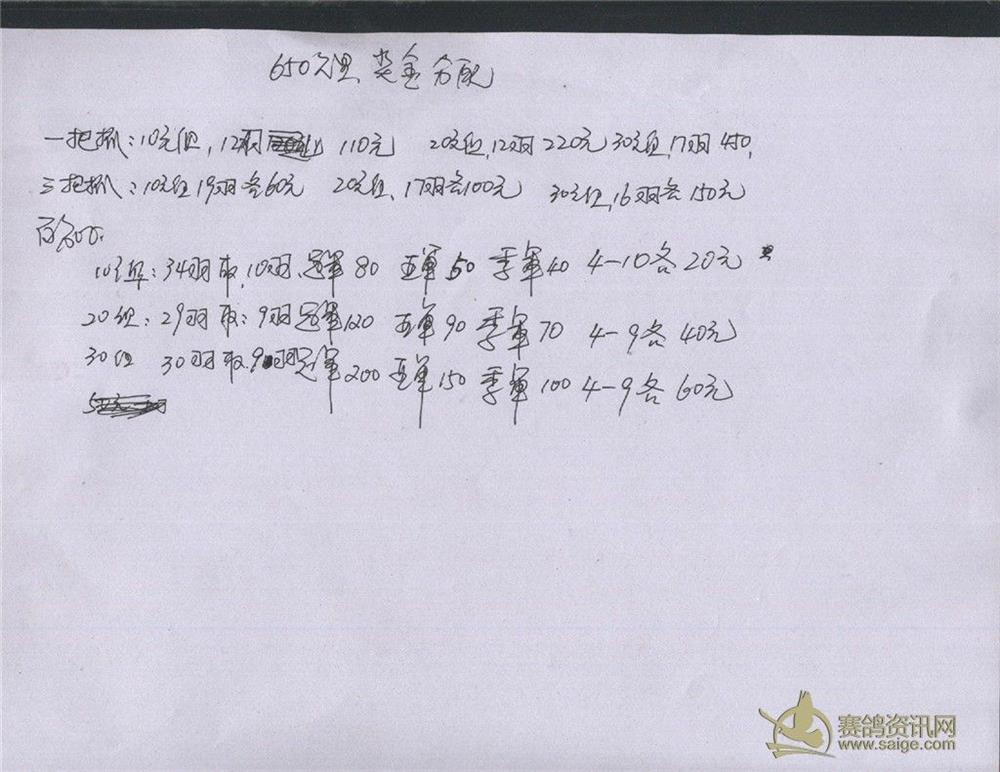 650公里奖金分配
一把抓：10元组，12羽 110元 20元组，12羽 220元 30元组，17羽 450，
三把抓：10元组 19羽各60元 20元组，17羽各100元 30元组，16羽各150元
10元组：34羽取，10羽 冠军 80 亚军 50 季军 40 4-10各20元
20组：29羽取：9羽冠军120 亚军90 季军70 4-9各40元
30组 30羽取.9羽冠军200 亚军150 季军100 4-9各60元
赛鸽资讯网
www.saige.com